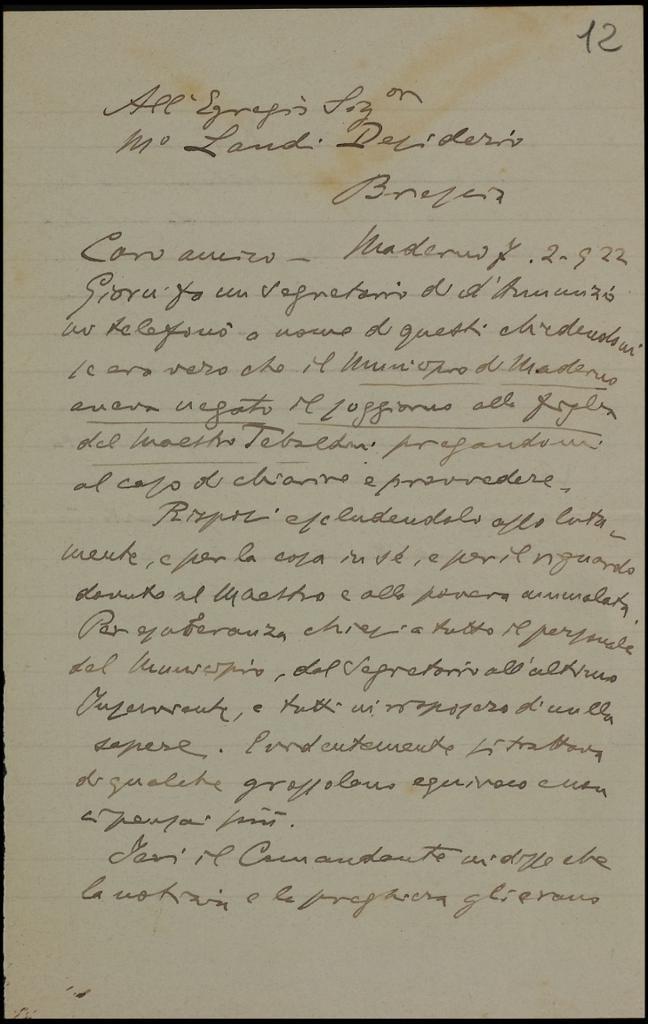 12
All'Egregio Sigor
Mo Landi Desiderio
Brescia
Caro amico - Maderno 7. 2-922
Giorni fa un Segretario di d'Annunzio
mi telefonò a nome di questi chiedendomi
se era vero che il Municipio di Maderno
aveva negato il soggiorno alla figlia
del Maestro Tebaldini pregandomi
al caso di chiarire e provvedere.
Risposi escludendolo assoluta-
mente, e per la cosa in sé, e per il riguardo
dovuto al Maestro e alla povera ammalata.
Per esuberanza chiesi a tutto il personale
del Municipio, dal Segretario all'ultimo
Inserviente, e tutti mi risposero di nulla
sapere. Evidentemente si trattava
di qualche grossolano equivoco e non
ci pensai più.
Ieri il Comandante mi disse che
la notizia e la preghiera gli erano